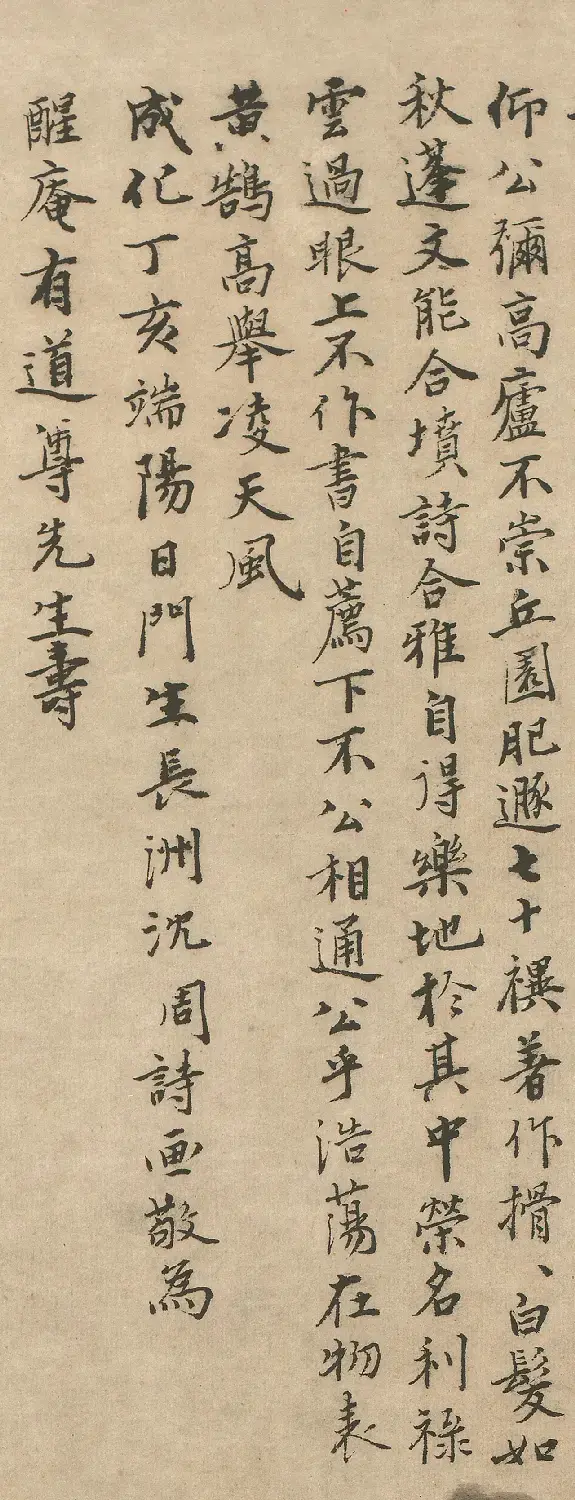 仰公彌高廬不崇丘園肥遯七十禩著作搰、白髮如
秋蓬文能合墳詩合雅自得樂地於其中榮名利祿
雲過眼上不作書自薦下不公相通公乎浩蕩在物表
黃鵠高舉凌天風
成化丁亥端陽日門生長洲沈周詩画敬為
醒庵有道尊先生壽